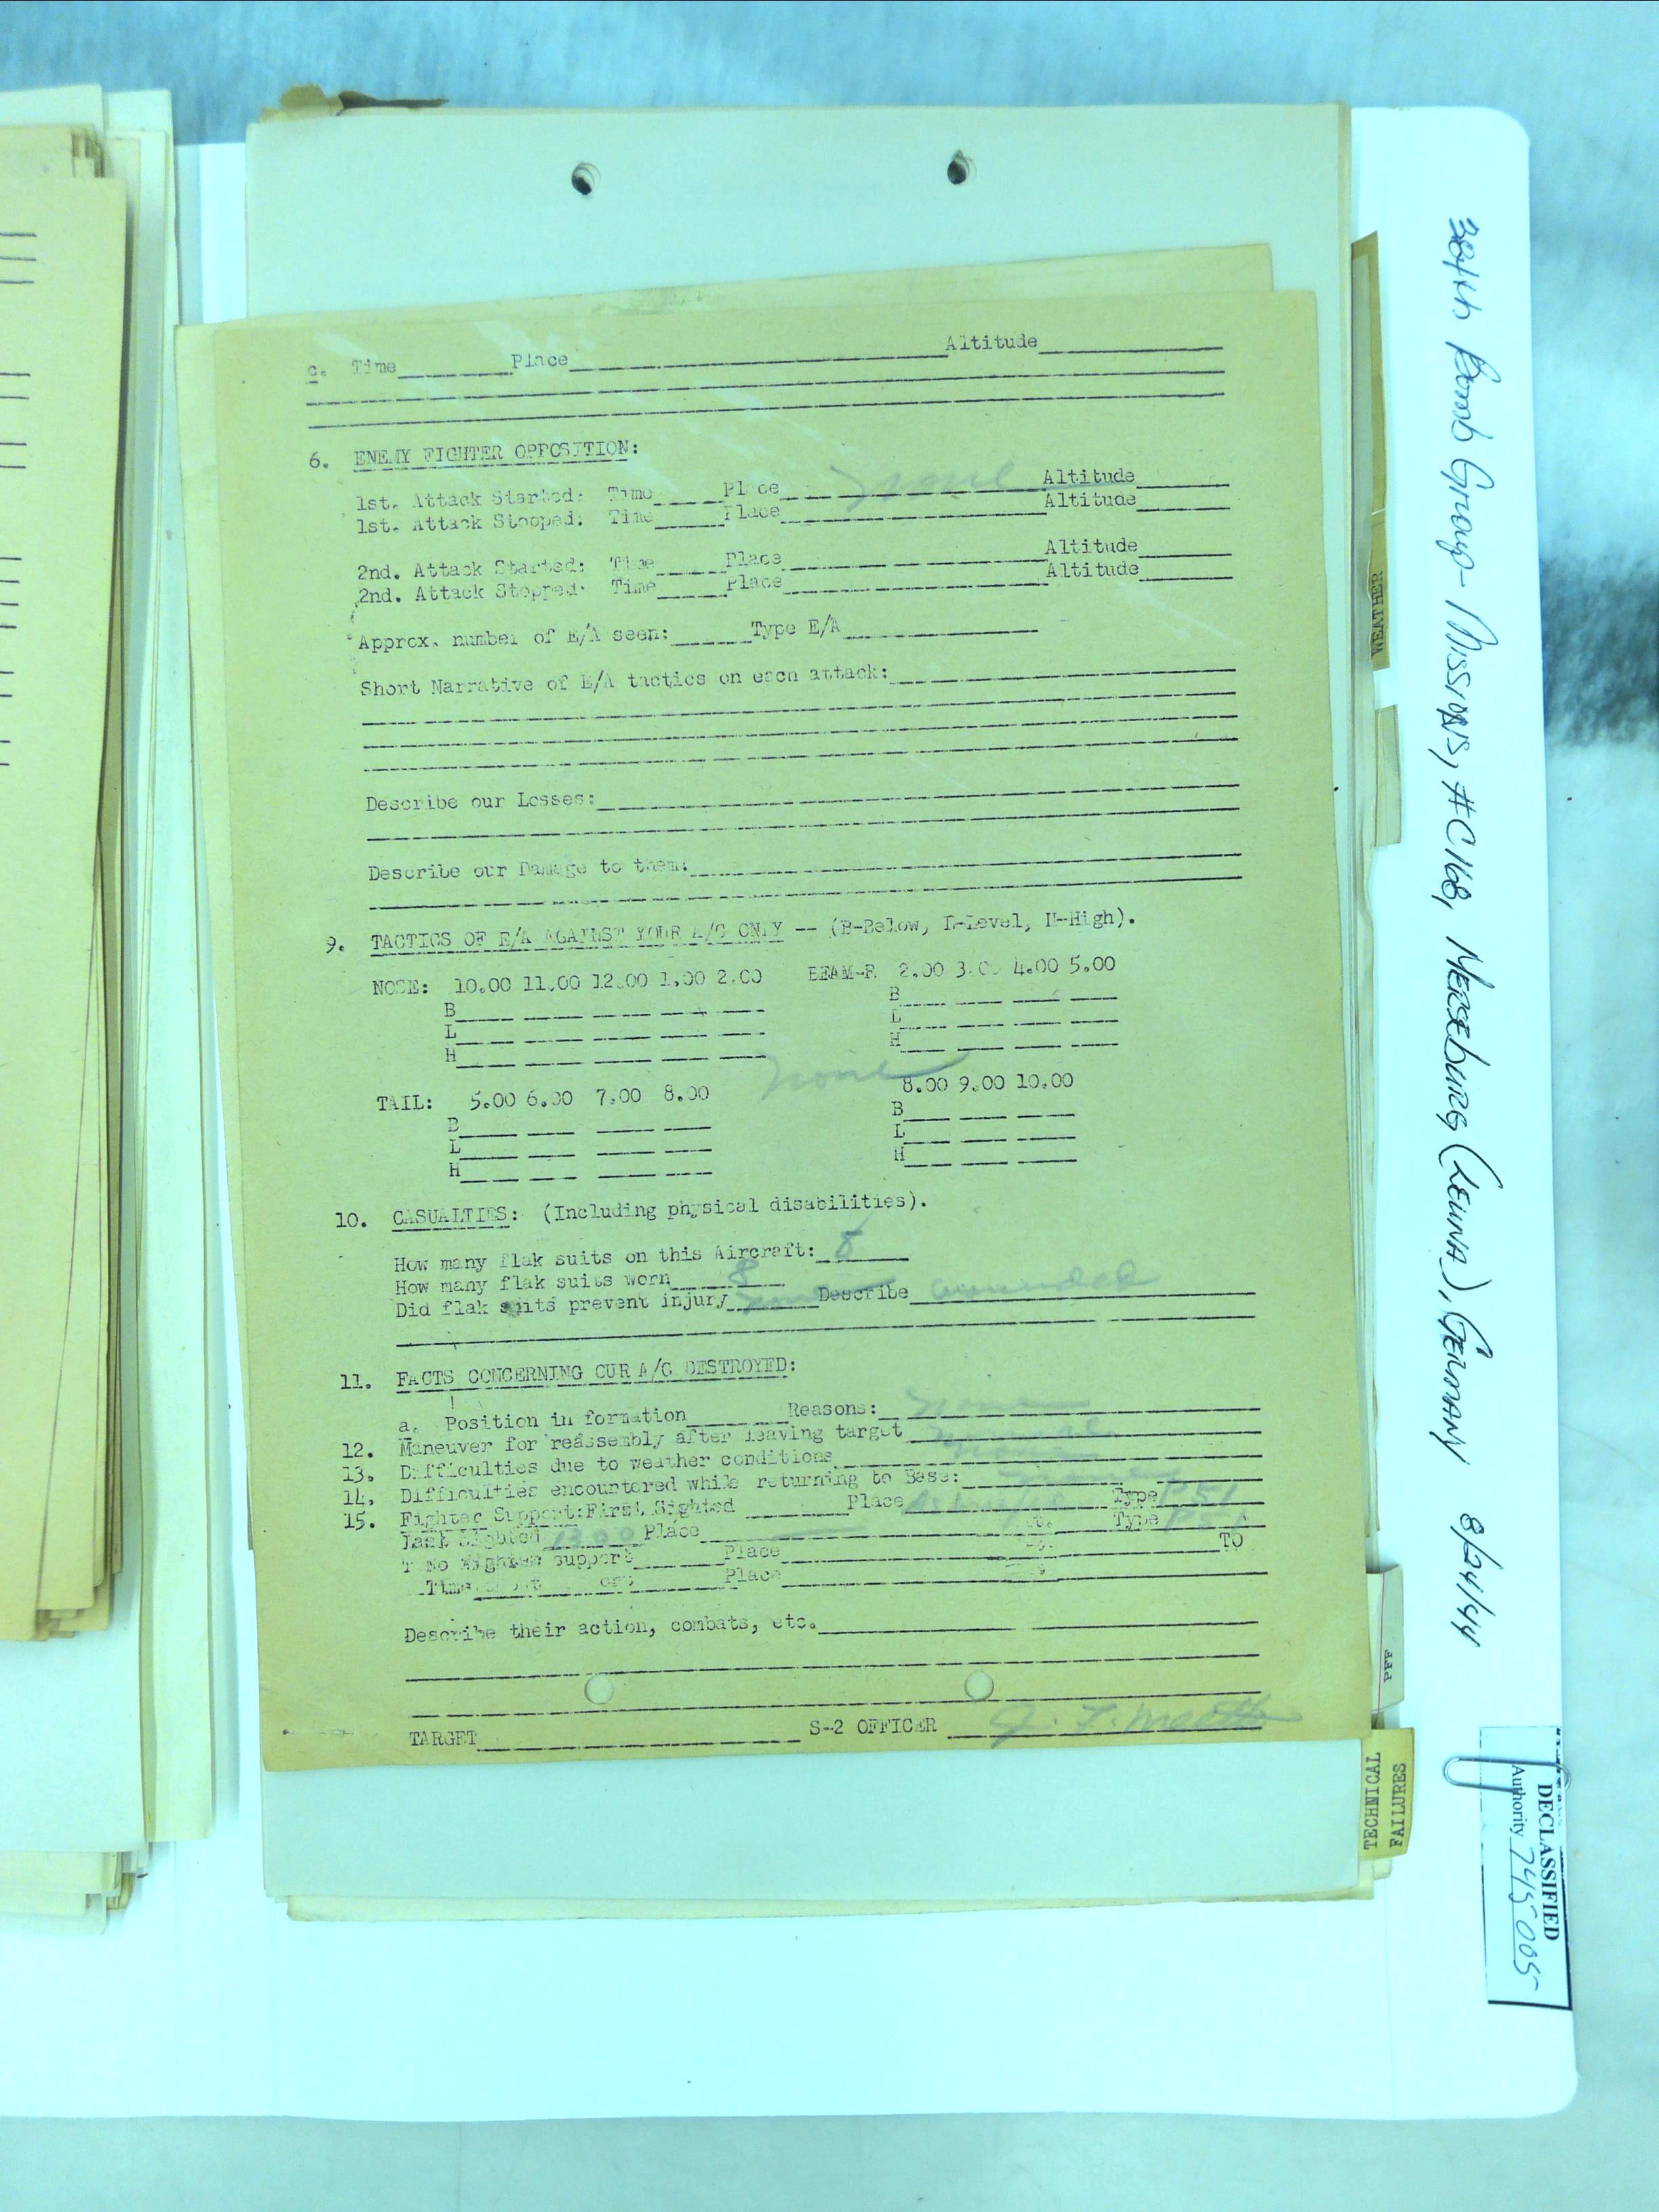 c. Time Place Altitude
6. ENEMY FIGHTER OPPOSITION:
1st. Attack Started: Time Place none Altitude
1st. Attack Stopped: Time Place Altitude
2nd. Attack Started: Time Place Altitude
2nd. Attack Stopped: Time Place Altitude
Approx. number of E/A seen: Type E/A
Short Narrative of E/A tactics on each attack:
Describe our Losses:
Describe our Damage to them:
9. TACTICS OF E/A AGAINST YOUR A/C ONLY -- (B-Below, L-Level, H-High).
NOSE: 10.00 11.00 12.00 1.00 2.00 BEAM-R 2.00 3.00 4.00 5.00
B B
L L
H H
none
TAIL: 5.00 6.00 7.00 8.00 8.00 9.00 10.00
B B
L L
H H
10. CASUALTIES: (Including physical disabilities).
How many flak suits on this Aircraft: 8
How many flak suits worn 8
Did flak suits prevent injury none Describe wounded
11. FACTS CONCERNING OUR A/C DESTROYED:
a. Position in formation Reasons: none
12. Maneuver for reassembly after leaving target normal
13. Difficulties due to weather conditions none
14. Difficulties encountered while returning to Base: none
15. Fighter Support: First Sighted Place Type P51
Last Sighted 1300 Place Type P51
No Fighter support Place TO
Time Place
Describe their action, combats, etc.
TARGET S-2 OFFICER J. F.
384th Bomb Group - Missions, #C168, Merseburg (Leuna), Germany 8/24/44
WEATHER
PFF
TECHNICAL
FAILURES
DECLASSIFIED
Authority 745005